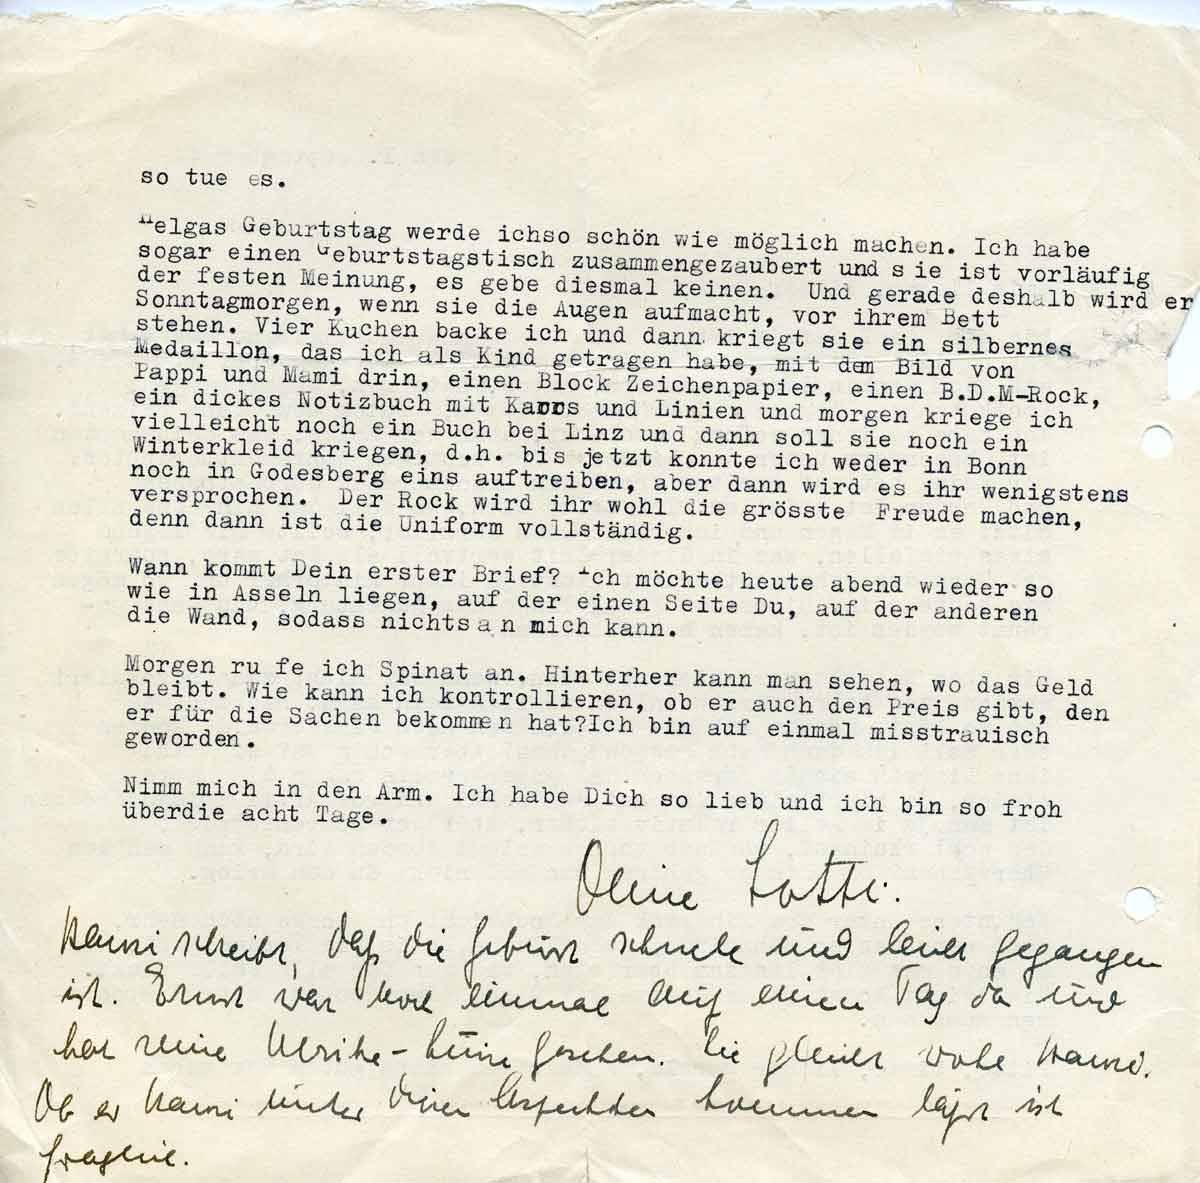 so tue es.
Helgas Geburtstag werde ichso schön wie möglich machen. Ich habe
sogar einen Geburtstagstisch zusammengezaubert und sie ist vorläufig
der festen Meinung, es gebe diesmal keinen. Und gerade deshalb wird er
Sonntagmorgen, wenn sie die Augen aufmacht, vor ihrem Bett
stehen. Vier Kuchen backe ich und dann kriegt sie ein silbernes
Medaillon, das ich als Kind getragen habe, mit dem Bild von
Pappi und Mami drin, einen Block Zeichenpapier, einen B.D.M-Rock,
ein dickes Notizbuch mit Karos und Linien und morgen kriege ich
vielleicht noch ein Buch bei Linz und dann soll sie noch ein
Winterkleid kriegen, d.h. bis jetzt konnte ich weder in Bonn
noch in Godesberg eins auftreiben, aber dann wird es ihr wenigstens
versprochen. Der Rock wird ihr wohl die grösste Freude machen,
denn dann ist die Uniform vollständig.
Wann kommt Dein erster Brief? Ich möchte heute abend wieder so
wie in Asseln liegen, auf der einen Seite Du, auf der anderen
die Wand, sodass nichts an mich kann.
Morgen ru fe ich Spinat an. Hinterher kann man sehen, wo das Geld
bleibt. Wie kann ich kontrollieren, ob er auch den Preis gibt, den
er für die Sachen bekommen hat?Ich bin auf einmal misstrauisch
geworden.
Nimm mich in den Arm. Ich habe Dich so lieb und ich bin so froh
überdie acht Tage.
Deine Lotti.
Hanni schreibt, daß die Geburt schnell und leicht gegangen
ist. Ernst war noch einmal auf einen Tag da und
hat seine Ulrike- gesehen. Sie gleicht wohl Hanni.
Ob er Hanni unter diesen Aspekten kommen läßt ist
fraglich.